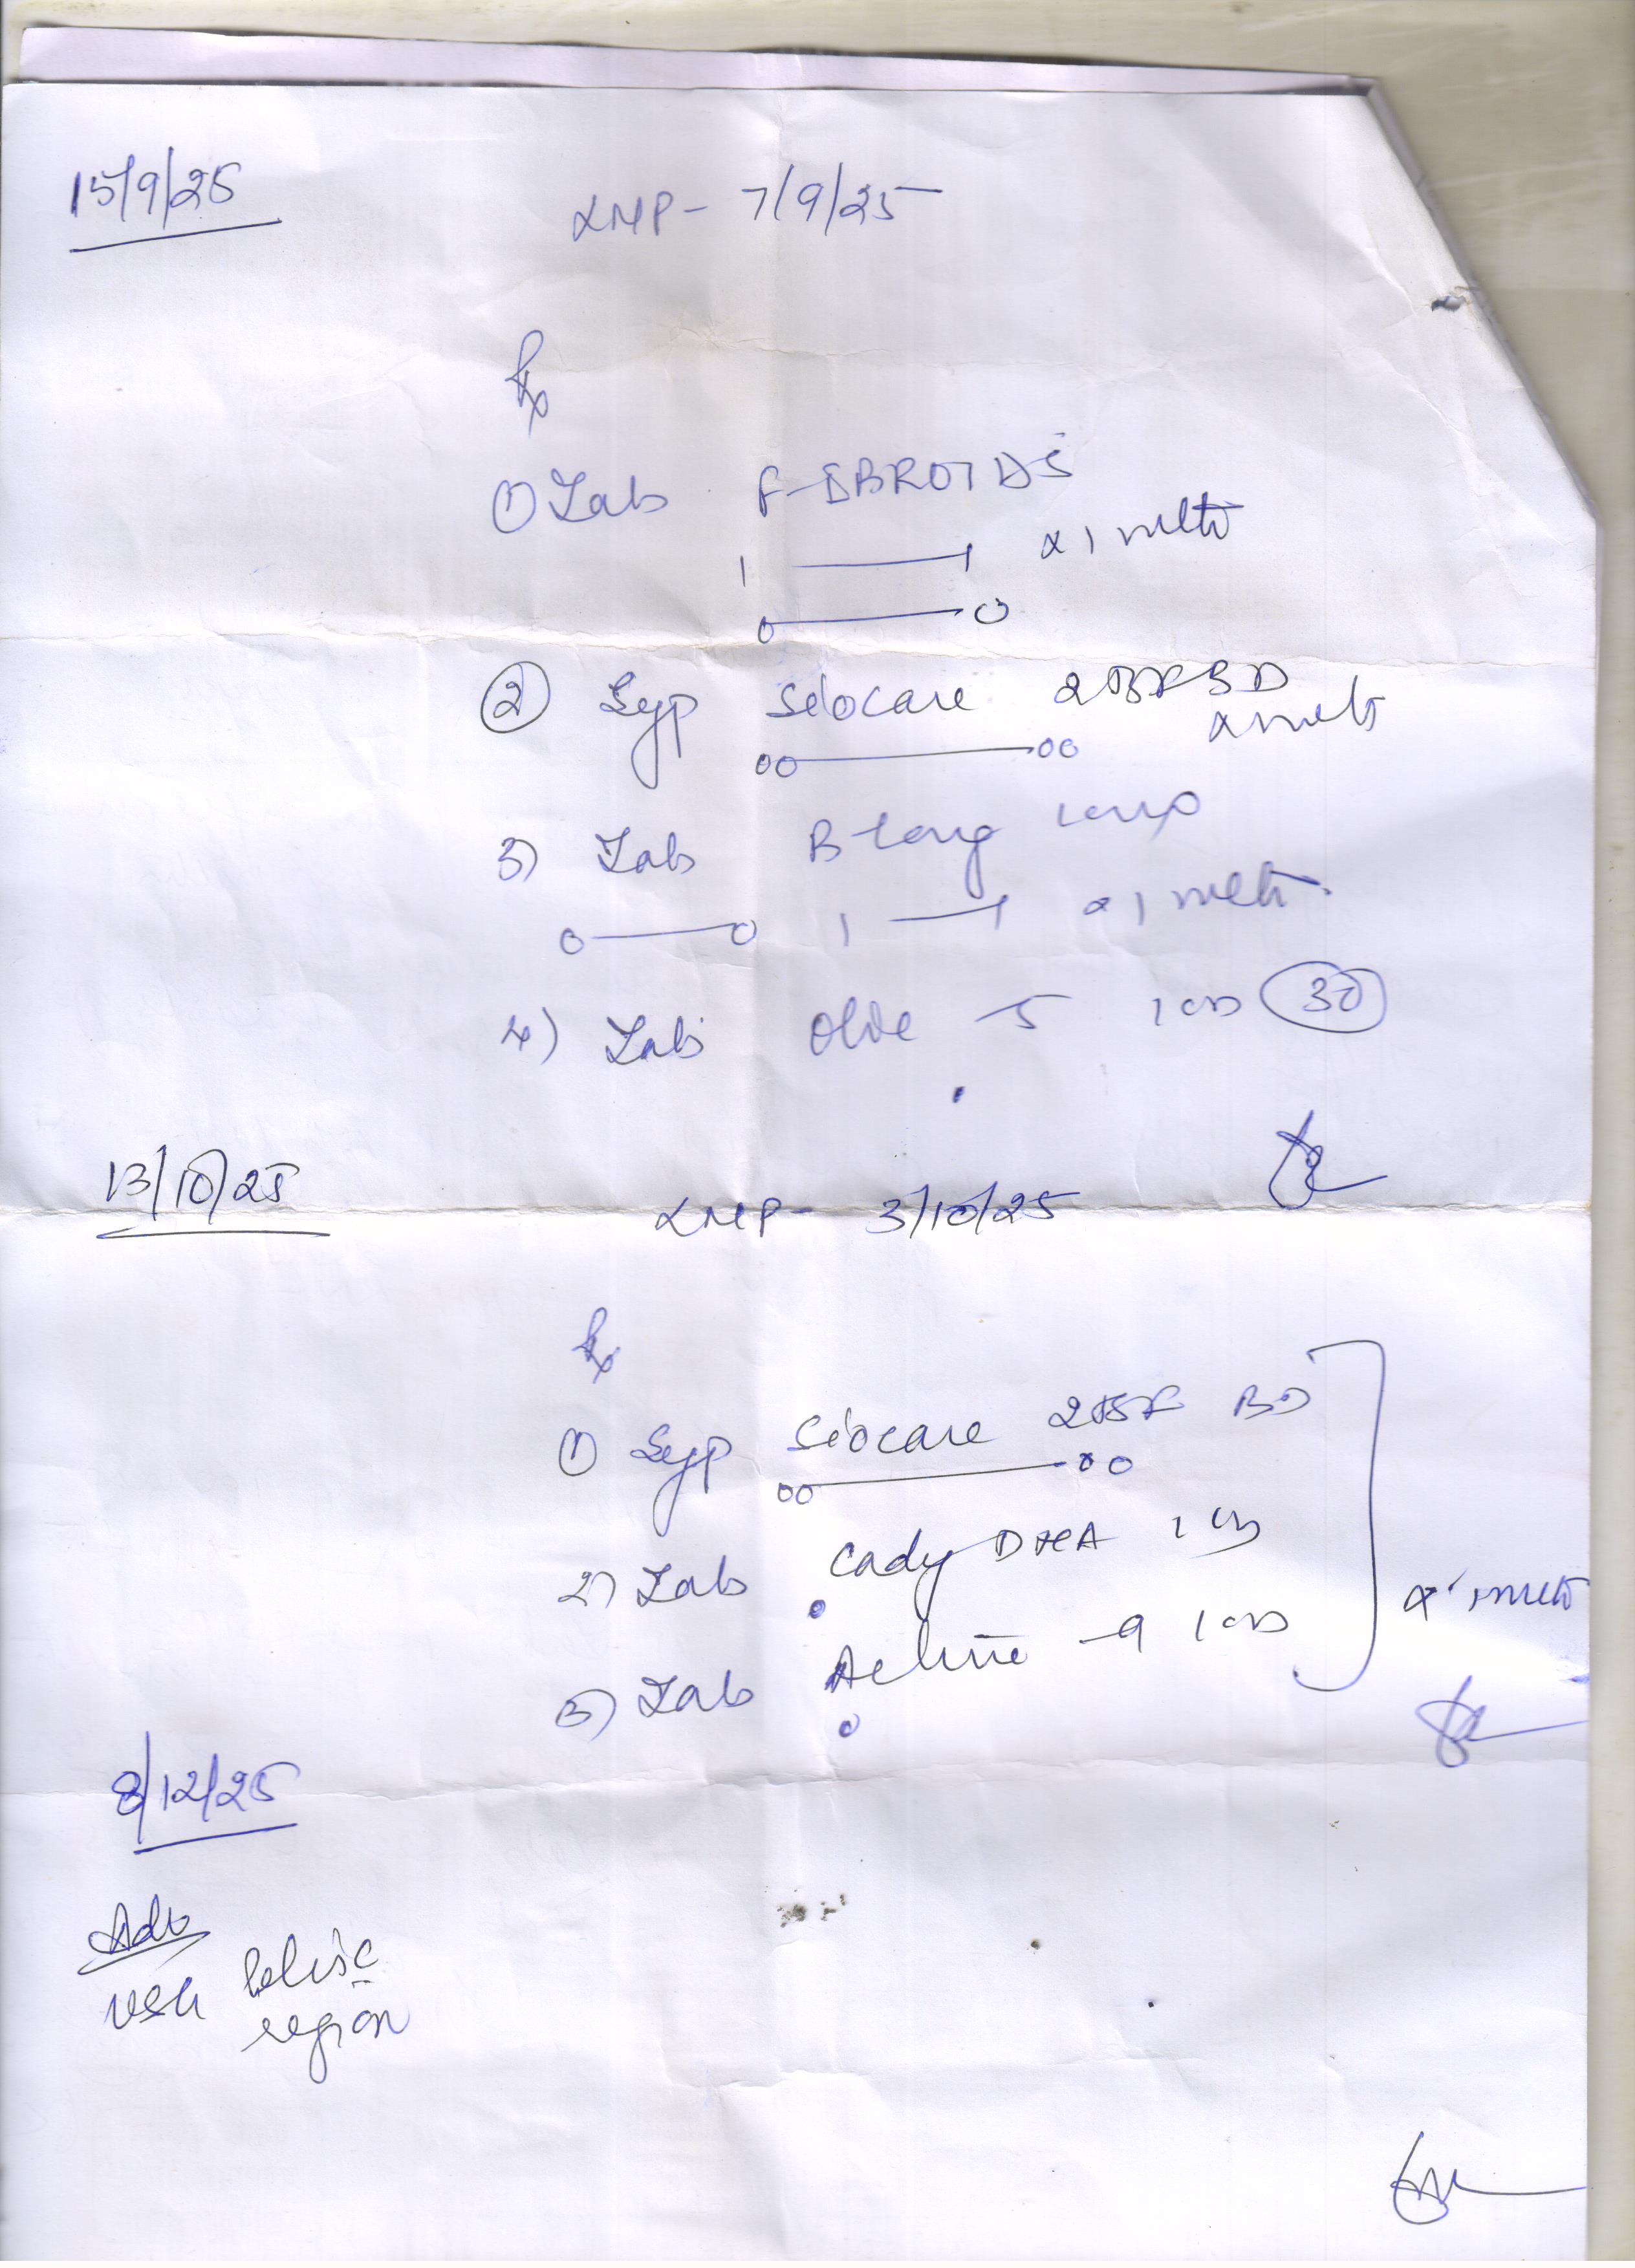 15/9/25
LMP - 7/9/25
Rx
① Tab F-IBROIDS
1 — 1 x 1 mth
o — o
② Syp Sebocare 2TSF BD
x mth
oo — oo
3) Tab B long
o — o 1 — 1 x 1 mth.
4) Tab 5 1 OD 30
13/10/25
LMP - 3/10/25
Rx
① Syp Sebocare 2TSF BD
oo — oo
2) Tab Cady DHA 1 OD
3) Tab 1 OD
x 1 mth
8/12/25
Adv
USG Pelvic
region